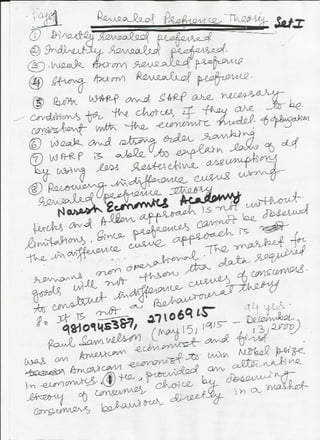 Page 1 Revealed Preference Theory Set I
① Directly revealed preferred
② Indirectly revealed preferred.
③ Weak Axiom revealed preference
④ Strong Axiom Revealed preference.
⑤ Both WARP and SARP are necessary
conditions for the choices if they are to be
consistent with the economic model of
⑥ Weak and strong order ranking
⑦ WARP is able to explain law of dd
by using less restrictive assumptions
⑧ Recovering indifference curves using
revealed preference theory
Naresh Economics Academy
Hicks and Allen approach is not without
limitations. Since preferences cannot be observed
the indifference curve approach is
remains non operational. The market for
goods will not throw the data required
to construct indifference curves of consumers.
So It is not a Behavioural theory
9810945387, 27106915 94 yrs.
Paul Samuelson (May 15, 1915 - December
13, 2009)
was an American economist and first
American economist to win Nobel prize
in economics. ① He, provided an alternative
theory of consumer choice by observing
consumers behaviour directly in a market